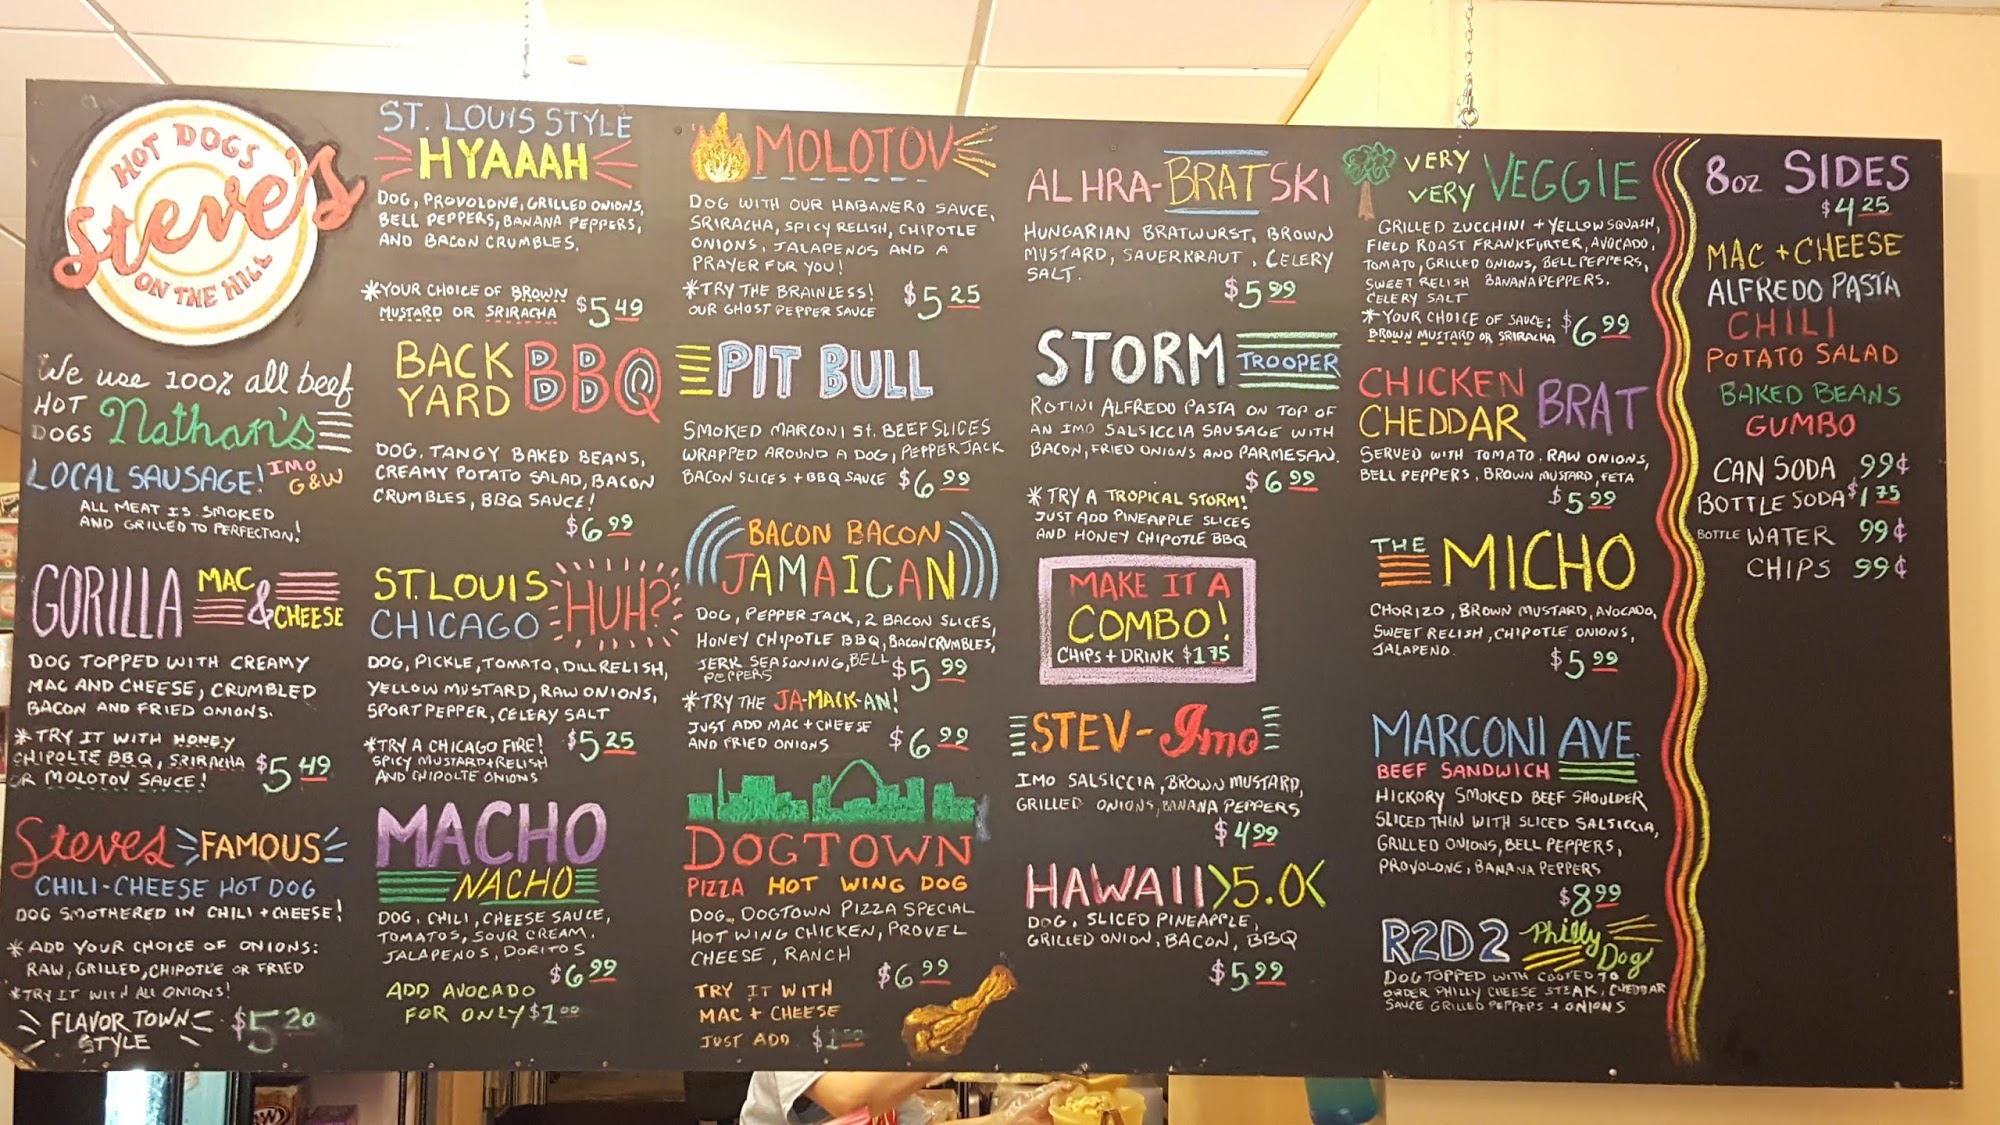 HOT DOGS
Steve's
ON THE HILL
We use 100% all beef
HOT
DOGS Nathan's
LOCAL SAUSAGE! IMO
G&W
ALL MEAT IS SMOKED
AND GRILLED TO PERFECTION!
GORILLA MAC
& CHEESE
DOG TOPPED WITH CREAMY
MAC AND CHEESE, CRUMBLED
BACON AND FRIED ONIONS.
*TRY IT WITH HONEY
CHIPOLTE BBQ, SRIRACHA
OR MOLOTOV SAUCE! $5 49
Steves FAMOUS
CHILI-CHEESE HOT DOG
DOG SMOTHERED IN CHILI + CHEESE!
*ADD YOUR CHOICE OF ONIONS:
RAW, GRILLED, CHIPOTLE OR FRIED
*TRY IT WITH ALL ONIONS!
FLAVOR TOWN
STYLE $5 20
ST. LOUIS STYLE
HYAAAH
DOG, PROVOLONE, GRILLED ONIONS,
BELL PEPPERS, BANANA PEPPERS,
AND BACON CRUMBLES.
*YOUR CHOICE OF BROWN
MUSTARD OR SRIRACHA $5 49
BACK
YARD BBQ
DOG, TANGY BAKED BEANS,
CREAMY POTATO SALAD, BACON
CRUMBLES, BBQ SAUCE!
$6 99
ST. LOUIS
CHICAGO HUH?
DOG, PICKLE, TOMATO, DILL RELISH,
YELLOW MUSTARD, RAW ONIONS,
SPORT PEPPER, CELERY SALT
*TRY A CHICAGO FIRE! $5 25
SPICY MUSTARD + RELISH
AND CHIPOLTE ONIONS
MACHO
NACHO
DOG, CHILI, CHEESE SAUCE,
TOMATOS, SOUR CREAM,
JALAPENOS, DORITOS
$6 99
ADD AVOCADO
FOR ONLY $1 00
MOLOTOV
DOG WITH OUR HABANERO SAUCE,
SRIRACHA, SPICY RELISH, CHIPOTLE
ONIONS, JALAPENOS AND A
PRAYER FOR YOU!
*TRY THE BRAINLESS!
OUR GHOST PEPPER SAUCE $5 25
PIT BULL
SMOKED MARCONI St. BEEF SLICES
WRAPPED AROUND A DOG, PEPPER JACK
BACON SLICES + BBQ SAUCE $6 99
BACON BACON
JAMAICAN
DOG, PEPPER JACK, 2 BACON SLICES,
HONEY CHIPOTLE BBQ, BACON CRUMBLES,
JERK SEASONING, BELL
PEPPERS $5 99
*TRY THE JA-MACK-AN!
JUST ADD MAC + CHEESE
AND FRIED ONIONS $6 99
DOGTOWN
PIZZA HOT WING DOG
DOG, DOGTOWN PIZZA SPECIAL
HOT WING CHICKEN, PROVEL
CHEESE, RANCH $6 99
TRY IT WITH
MAC + CHEESE
JUST ADD
AL HRA-BRATSKI
HUNGARIAN BRATWURST, BROWN
MUSTARD, SAUERKRAUT, CELERY
SALT.
$5 99
STORM TROOPER
ROTINI ALFREDO PASTA ON TOP OF
AN IMO SALSICCIA SAUSAGE WITH
BACON, FRIED ONIONS AND PARMESAN.
$6 99
*TRY A TROPICAL STORM!
JUST ADD PINEAPPLE SLICES
AND HONEY CHIPOTLE BBQ
MAKE IT A
COMBO!
CHIPS + DRINK $1 75
STEV-Imo
IMO SALSICCIA, BROWN MUSTARD,
GRILLED ONIONS, BANANA PEPPERS
$4 99
HAWAII >5.0<
DOG, SLICED PINEAPPLE,
GRILLED ONION, BACON, BBQ
$5 99
VERY
VERY VEGGIE
GRILLED ZUCCHINI + YELLOW SQUASH,
FIELD ROAST FRANKFURTER, AVOCADO,
TOMATO, GRILLED ONIONS, BELL PEPPERS,
SWEET RELISH BANANA PEPPERS.
CELERY SALT
*YOUR CHOICE OF SAUCE:
BROWN MUSTARD OR SRIRACHA $6 99
CHICKEN
CHEDDAR BRAT
SERVED WITH TOMATO. RAW ONIONS,
BELL PEPPERS, BROWN MUSTARD, FETA
$5 99
THE MICHO
CHORIZO, BROWN MUSTARD, AVOCADO,
SWEET RELISH, CHIPOTLE ONIONS,
JALAPENO.
$5 99
MARCONI AVE.
BEEF SANDWICH
HICKORY SMOKED BEEF SHOULDER
SLICED THIN WITH SLICED SALSICCIA,
GRILLED ONIONS, BELL PEPPERS,
PROVOLONE, BANANA PEPPERS
$8 99
R2D2 Philly
Dog
DOG TOPPED WITH COOKED TO
ORDER PHILLY CHEESE STEAK, CHEDDAR
SAUCE GRILLED PEPPERS + ONIONS
8oz SIDES
$4 25
MAC + CHEESE
ALFREDO PASTA
CHILI
POTATO SALAD
BAKED BEANS
GUMBO
CAN SODA 99¢
BOTTLE SODA $1 75
BOTTLE WATER 99¢
CHIPS 99¢